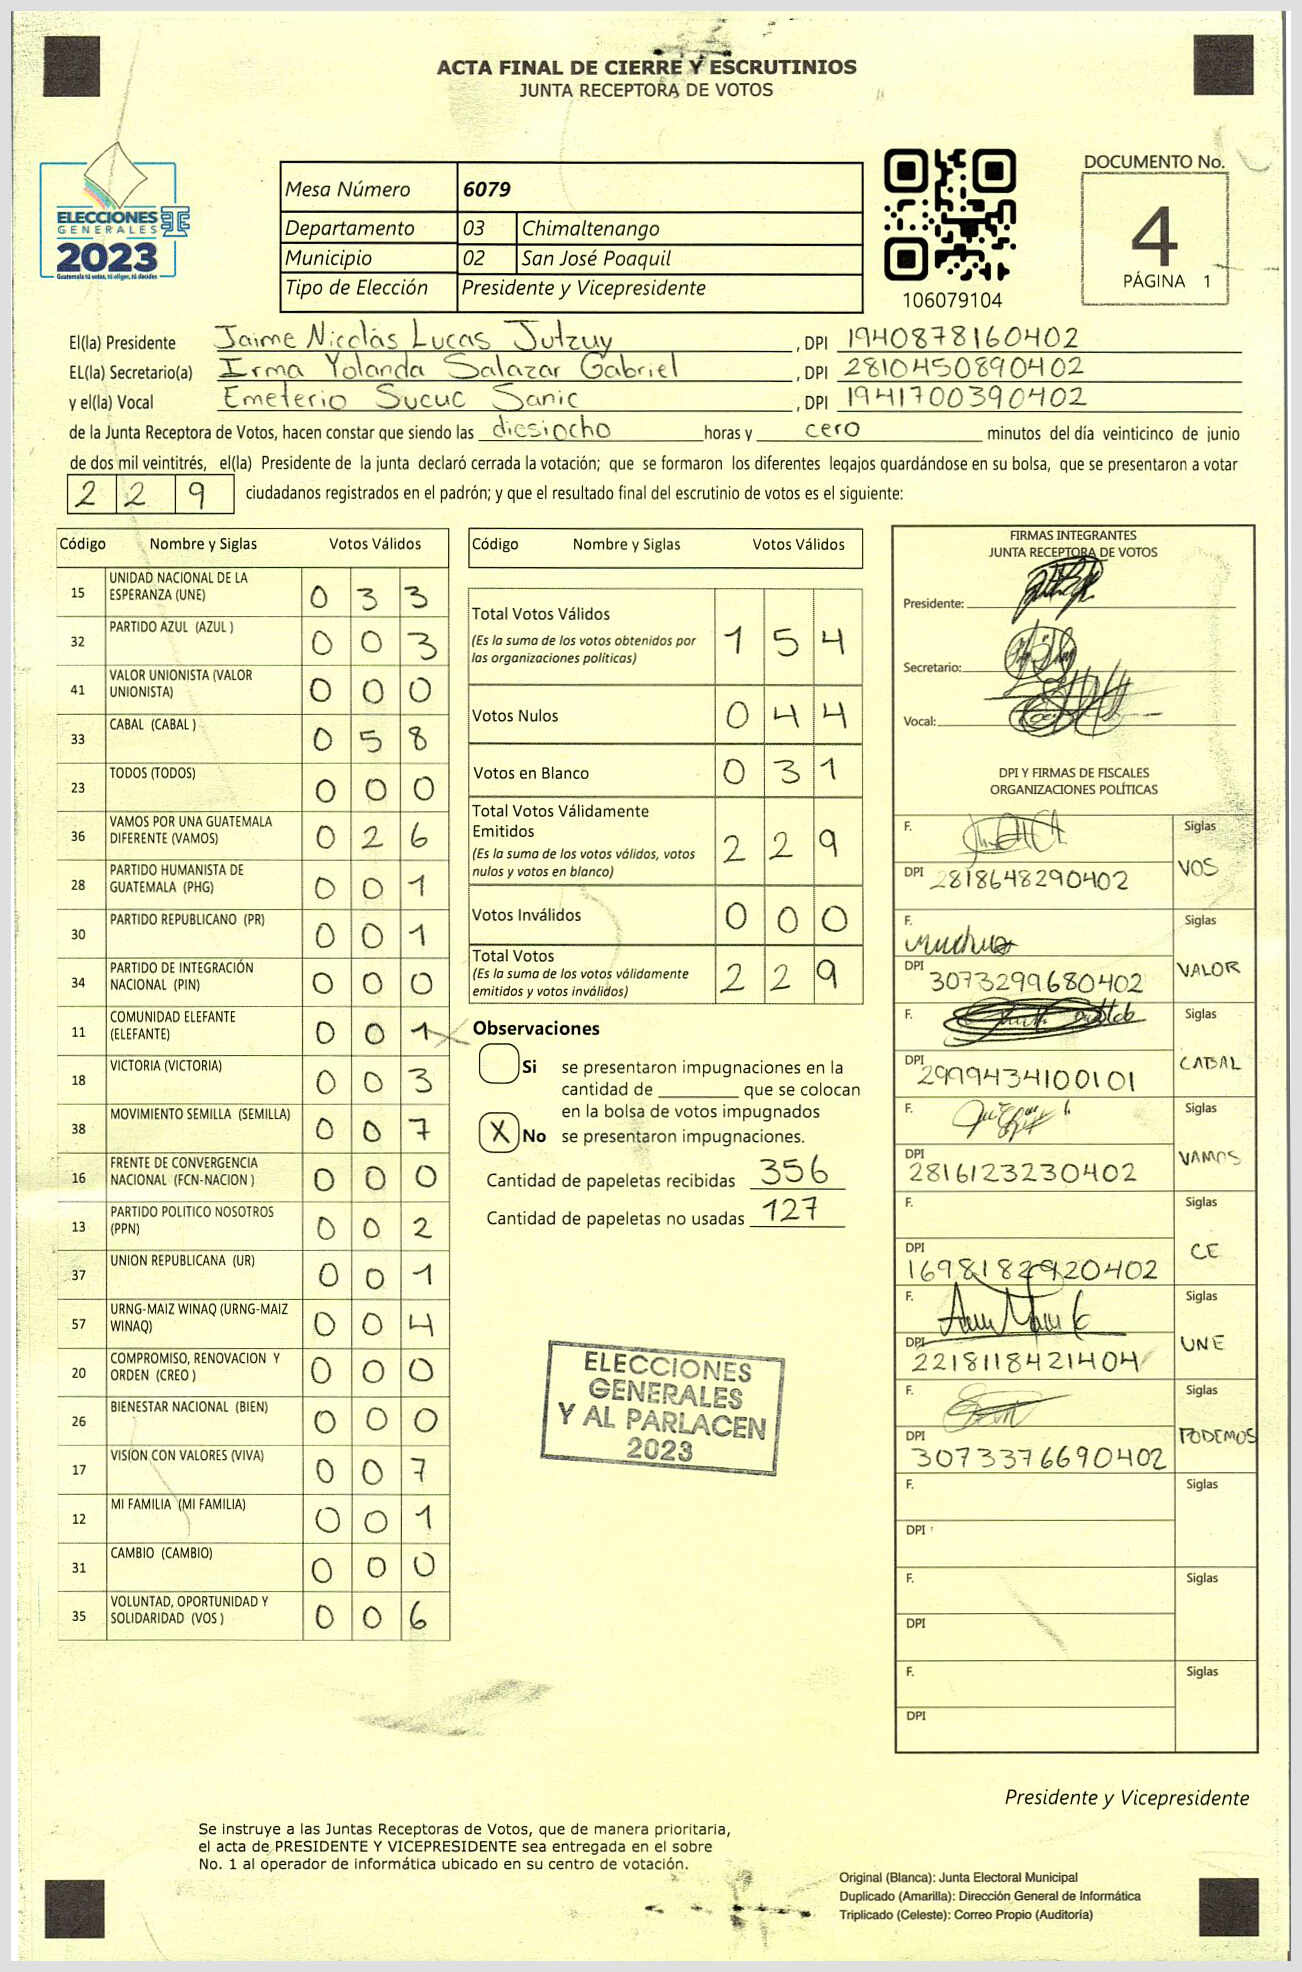 ACTA FINAL DE CIERRE Y ESCRUTINIOS
JUNTA RECEPTORA DE VOTOS
DOCUMENTO No.
4
PÁGINA 1
ELECCIONES
GENERALES
2023
Guatemala tú votas, tú eliges, tú decides
Mesa Número 6079
Departamento 03 Chimaltenango
Municipio 02 San José Poaquil
Tipo de Elección Presidente y Vicepresidente
106079104
El(la) Presidente Jaime Nicolás Lucas Jutzuy , DPI 1940878160402
EL(la) Secretario(a) Irma Yolanda Salazar Gabriel , DPI 2810450890402
y el(la) Vocal Emeterio Sucuc Sanic , DPI 1941700390402
de la Junta Receptora de Votos, hacen constar que siendo las diesiocho horas y cero minutos del día veinticinco de junio
de dos mil veintitrés, el(la) Presidente de la junta declaró cerrada la votación; que se formaron los diferentes legajos guardándose en su bolsa, que se presentaron a votar
229 ciudadanos registrados en el padrón; y que el resultado final del escrutinio de votos es el siguiente:
Código Nombre y Siglas Votos Válidos
15 UNIDAD NACIONAL DE LA ESPERANZA (UNE) 0 3 3
32 PARTIDO AZUL (AZUL ) 0 0 3
41 VALOR UNIONISTA (VALOR UNIONISTA) 0 0 0
33 CABAL (CABAL ) 0 5 8
23 TODOS (TODOS) 0 0 0
36 VAMOS POR UNA GUATEMALA DIFERENTE (VAMOS) 0 2 6
28 PARTIDO HUMANISTA DE GUATEMALA (PHG) 0 0 1
30 PARTIDO REPUBLICANO (PR) 0 0 1
34 PARTIDO DE INTEGRACIÓN NACIONAL (PIN) 0 0 0
11 COMUNIDAD ELEFANTE (ELEFANTE) 0 0 1
18 VICTORIA (VICTORIA) 0 0 3
38 MOVIMIENTO SEMILLA (SEMILLA) 0 0 7
16 FRENTE DE CONVERGENCIA NACIONAL (FCN-NACION ) 0 0 0
13 PARTIDO POLITICO NOSOTROS (PPN) 0 0 2
37 UNION REPUBLICANA (UR) 0 0 1
57 URNG-MAIZ WINAQ (URNG-MAIZ WINAQ) 0 0 4
20 COMPROMISO, RENOVACION Y ORDEN (CREO ) 0 0 0
26 BIENESTAR NACIONAL (BIEN) 0 0 0
17 VISION CON VALORES (VIVA) 0 0 7
12 MI FAMILIA (MI FAMILIA) 0 0 1
31 CAMBIO (CAMBIO) 0 0 0
35 VOLUNTAD, OPORTUNIDAD Y SOLIDARIDAD (VOS ) 0 0 6
Código Nombre y Siglas Votos Válidos
Total Votos Válidos 1 5 4
(Es la suma de los votos obtenidos por
las organizaciones políticas)
Votos Nulos 0 4 4
Votos en Blanco 0 3 1
Total Votos Válidamente
Emitidos 2 2 9
(Es la suma de los votos válidos, votos
nulos y votos en blanco)
Votos Inválidos 0 0 0
Total Votos 2 2 9
(Es la suma de los votos válidamente
emitidos y votos inválidos)
Observaciones
Si se presentaron impugnaciones en la
cantidad de ________ que se colocan
en la bolsa de votos impugnados
X No se presentaron impugnaciones.
Cantidad de papeletas recibidas 356
Cantidad de papeletas no usadas 127
ELECCIONES
GENERALES
Y AL PARLACEN
2023
FIRMAS INTEGRANTES
JUNTA RECEPTORA DE VOTOS
Presidente:
Secretario:
Vocal:
DPI Y FIRMAS DE FISCALES
ORGANIZACIONES POLÍTICAS
F. Siglas
DPI 2818648290402 VOS
F. Siglas
DPI 3073299680402 VALOR
F. Siglas
DPI 2999434100101 CABAL
F. Siglas
DPI 2816123230402 VAMOS
F. Siglas
DPI 1698182920402 CE
F. Siglas
DPI 2218118421404 UNE
F. Siglas
DPI 3073376690402 PODEMOS
F. Siglas
DPI
F. Siglas
DPI
F. Siglas
DPI
Presidente y Vicepresidente
Se instruye a las Juntas Receptoras de Votos, que de manera prioritaria,
el acta de PRESIDENTE Y VICEPRESIDENTE sea entregada en el sobre
No. 1 al operador de informática ubicado en su centro de votación.
Original (Blanca): Junta Electoral Municipal
Duplicado (Amarilla): Dirección General de Informática
Triplicado (Celeste): Correo Propio (Auditoría)